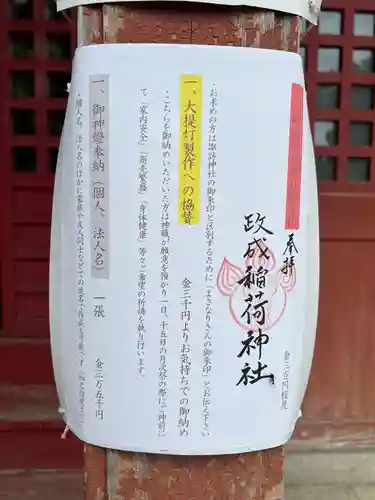 奉拝
政成稲荷神社
金三百円程度
・お求めの方は諏訪神社の御朱印と区別するために「まさなりさんの御朱印」とお伝え下さい
一、大提灯製作への協賛
金三千円よりお気持ちでの御納め
・こちらを御納めいただいた方は神職が願意を預かり一日、十五日の月次祭の際にご神前に
て「家内安全」「商売繁盛」「身体健康」等々ご希望の祈祷を執り行います。
一、御神燈奉納（個人、法人名） 一張
金三万五千円
個人名、法人名のほかに家族や友人同士などでの連名で作成も可能です